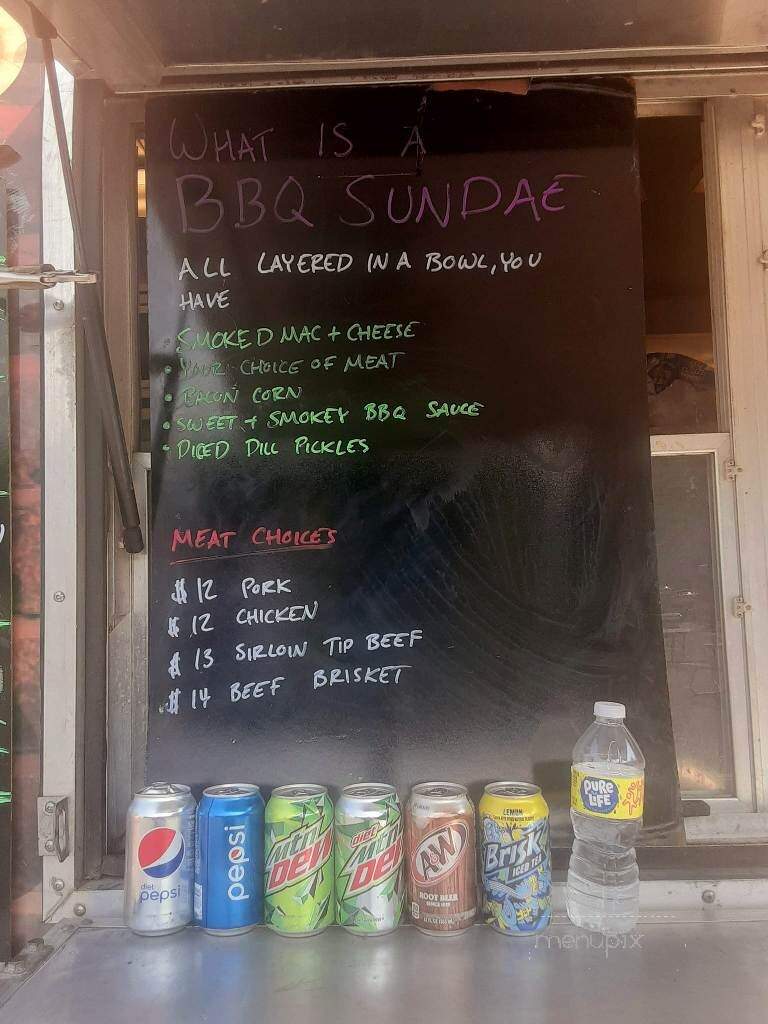 WHAT IS A
BBQ SUNDAE
ALL LAYERED IN A BOWL, YOU
HAVE
• SMOKED MAC + CHEESE
• YOUR CHOICE OF MEAT
• BACON CORN
• SWEET + SMOKEY BBQ SAUCE
• DICED DILL PICKLES
MEAT CHOICES
$12 PORK
$12 CHICKEN
$13 SIRLOIN TIP BEEF
$14 BEEF BRISKET
diet
pepsi
pepsi
Mtn
DEW
diet
Mtn
DEW
A&W
ROOT BEER
LEMON
Brisk
ICED TEA
PURE
LIFE
menupix